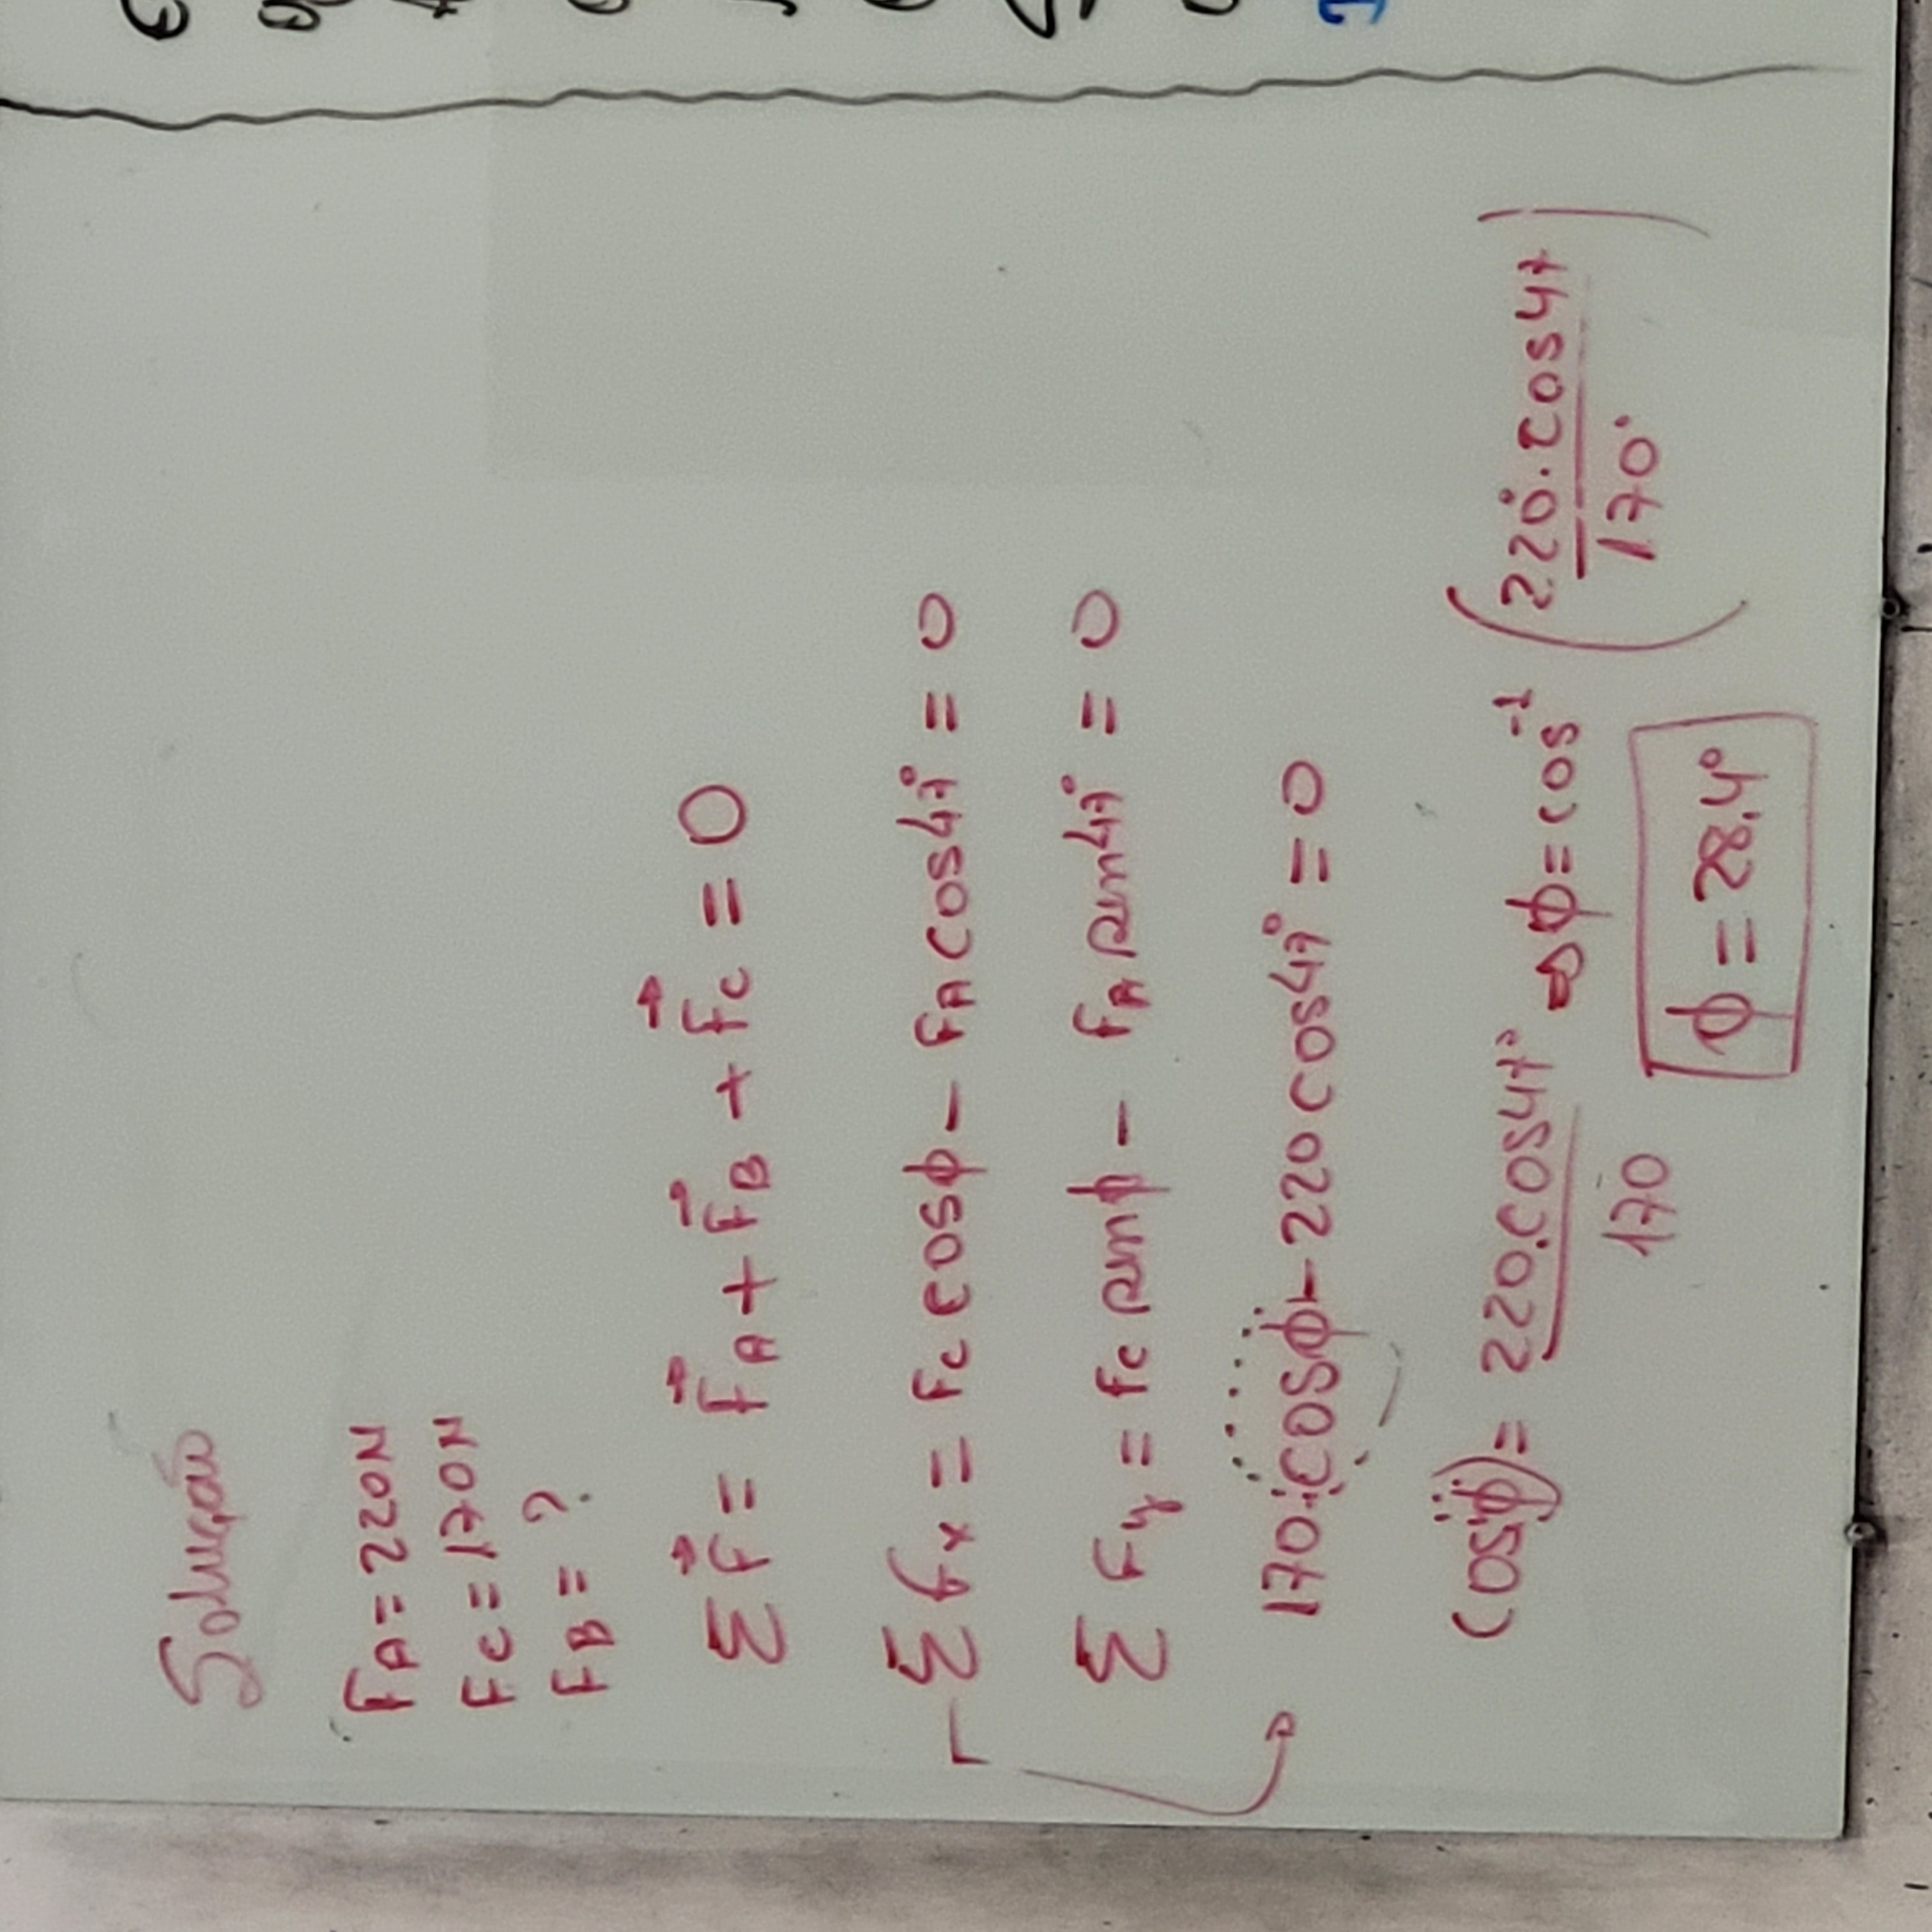 Solução
FA = 220N
FC = 170N
FB = ?
Σ F⃗ = F⃗A + F⃗B + F⃗C = 0
Σ Fx = FC cosϕ - FA cos47° = 0
Σ Fy = FC senϕ - FA sen47° = 0
170.cosϕ - 220 cos47° = 0
cosϕ = 220.cos47°/170 ⇒ ϕ = cos⁻¹ (220.cos47/170)
ϕ = 28,4°